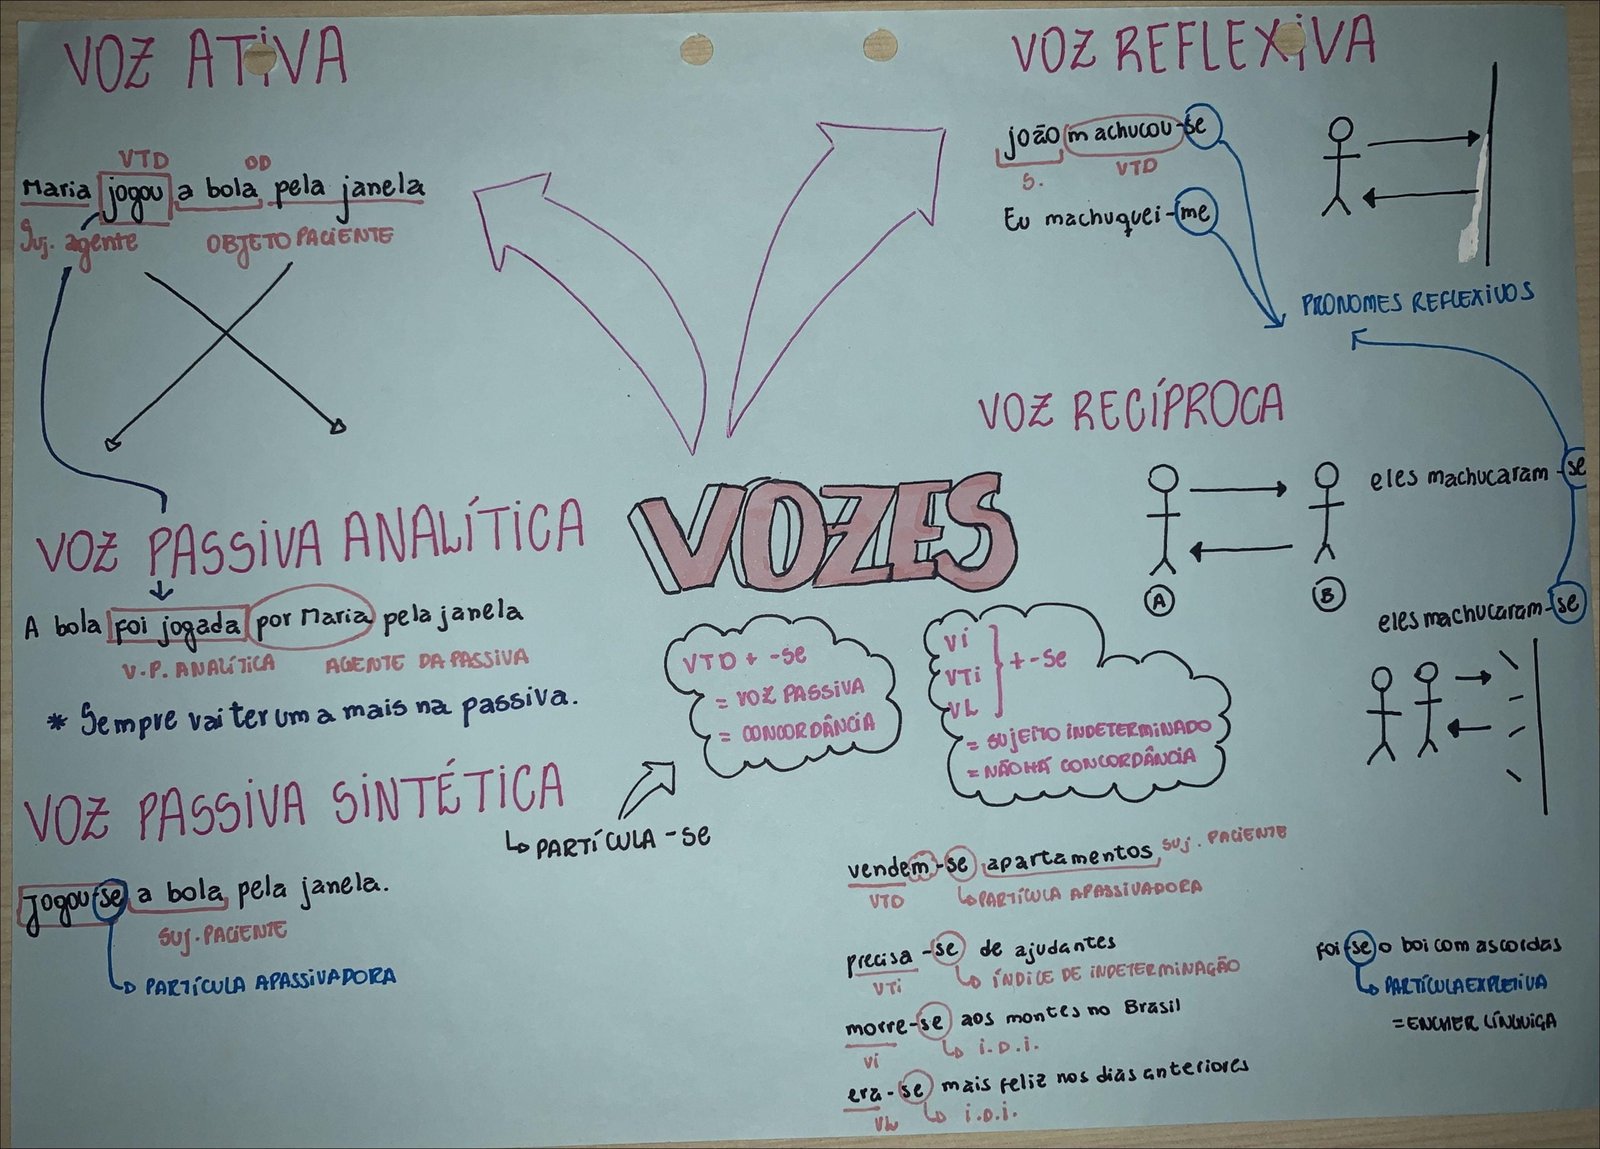 VOZ ATIVA
VTD OD
Maria jogou a bola pela janela
Suj. agente OBJETO PACIENTE
VOZ PASSIVA ANALÍTICA
A bola foi jogada por Maria pela janela
V.P. ANALÍTICA AGENTE DA PASSIVA
* Sempre vai ter um a mais na passiva.
VOZ PASSIVA SINTÉTICA
↳ PARTÍCULA -SE
jogou-se a bola pela janela.
SUJ. PACIENTE
PARTÍCULA APASSIVADORA
VOZES
VTD + -SE
= VOZ PASSIVA
= CONCORDÂNCIA
Vi
VTi
VL
+ -SE
= SUJEITO INDETERMINADO
= NÃO HÁ CONCORDÂNCIA
VOZ REFLEXIVA
joão machucou-se
S. VTD
Eu machuquei-me
PRONOMES REFLEXIVOS
VOZ RECÍPROCA
eles machucaram-se
A B
eles machucaram-se
vendem-se apartamentos SUJ. PACIENTE
VTD ↳ PARTÍCULA APASSIVADORA
precisa-se de ajudantes
VTi ↳ ÍNDICE DE INDETERMINAÇÃO
morre-se aos montes no Brasil
Vi ↳ i.D.i.
era-se mais feliz nos dias anteriores
VL ↳ i.D.i.
foi-se o boi com as cordas
PARTÍCULA EXPLETIVA
= ENCHER LÍNGUIGA